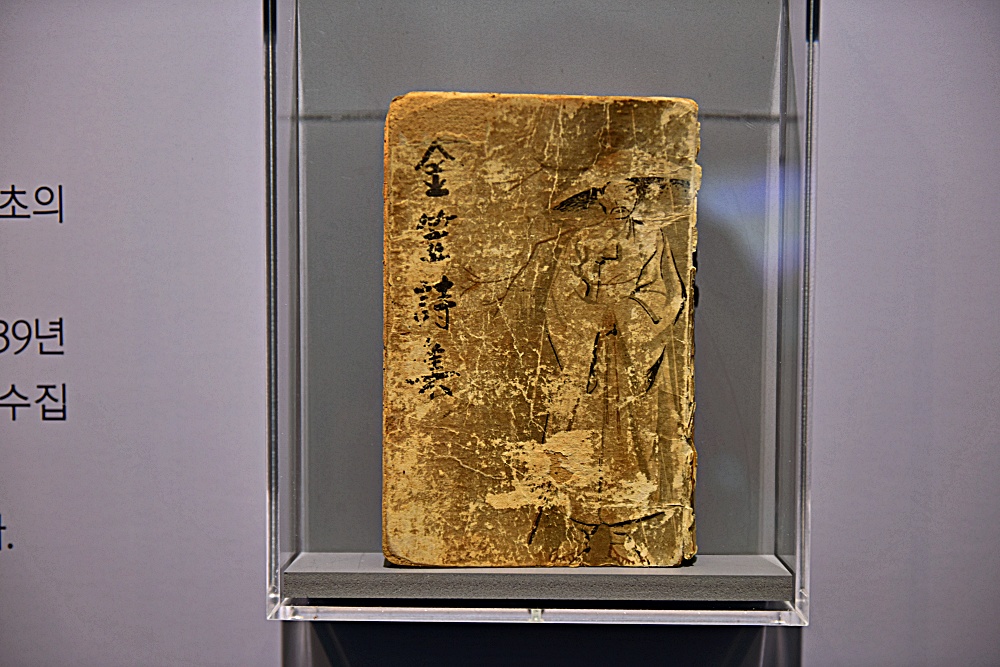 초의
39년
수집
金笠詩集